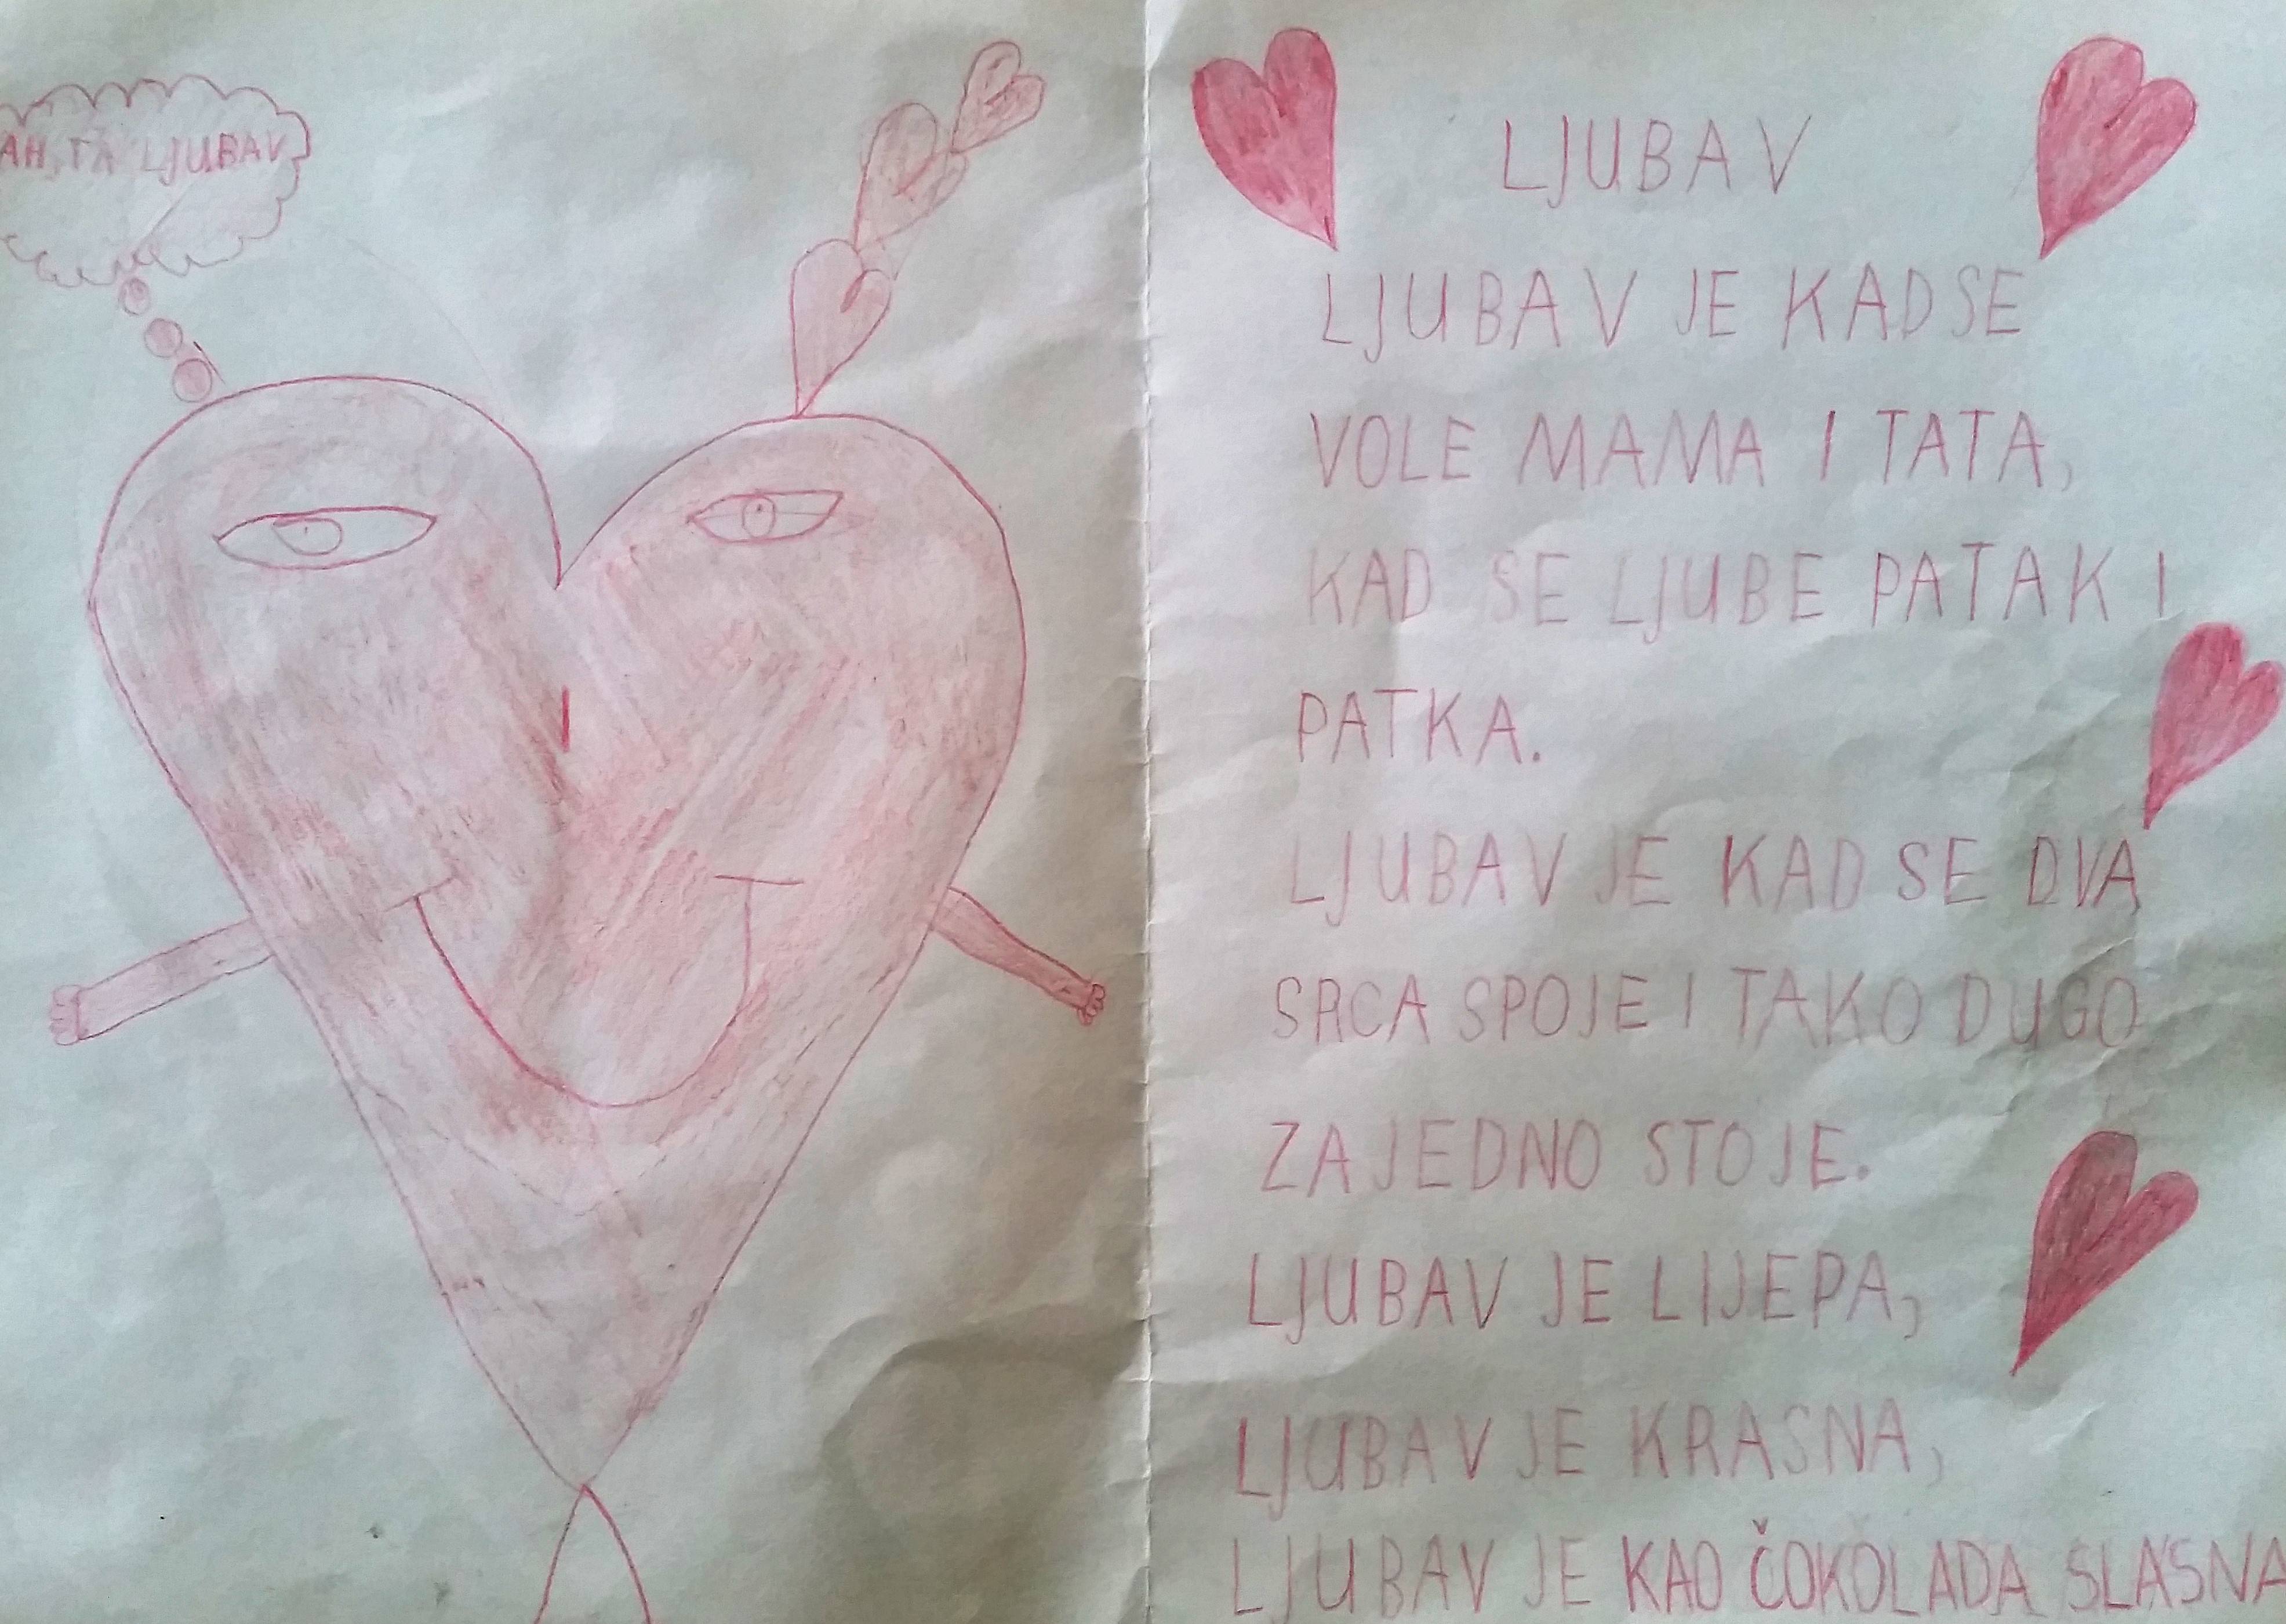 AH, TA LJUBAV
LJUBAV
LJUBAV JE KAD SE
VOLE MAMA I TATA,
KAD SE LJUBE PATAK I
PATKA.
LJUBAV JE KAD SE DVA
SRCA SPOJE I TAKO DUGO
ZAJEDNO STOJE.
LJUBAV JE LIJEPA,
LJUBAV JE KRASNA,
LJUBAV JE KAO ČOKOLADA SLASNA